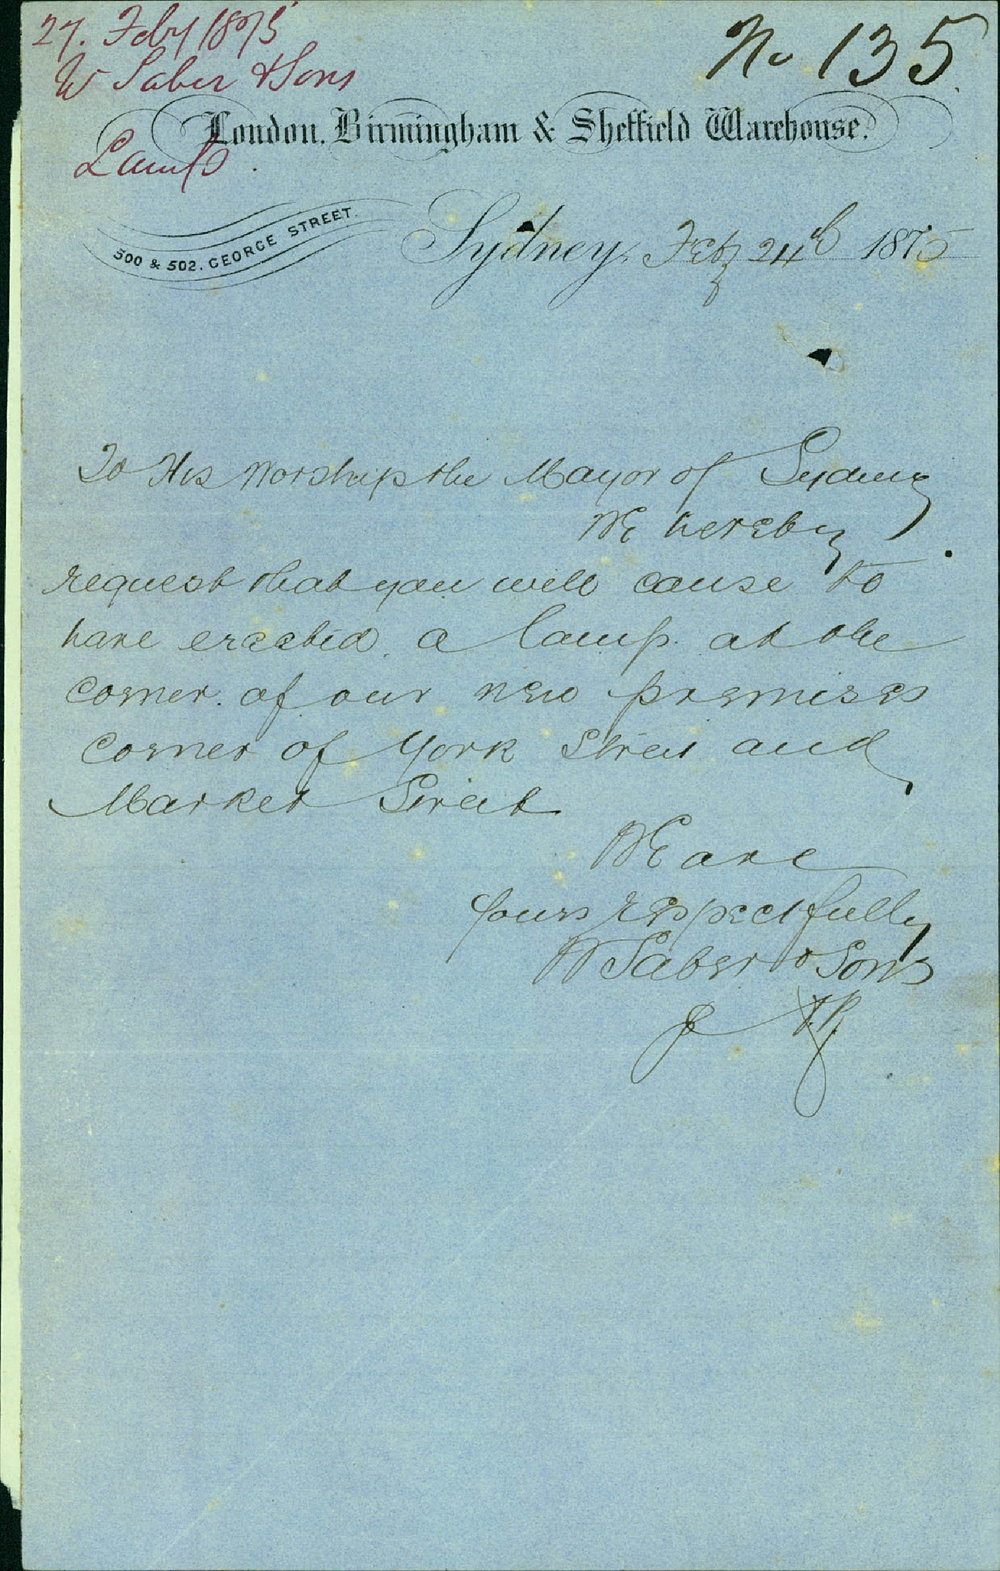 27. Feby 1875
W Saber & Sons
Lamp
No 135
London, Birmingham & Sheffield Warehouse.
500 & 502. GEORGE STREET.
Sydney, Feby 24th 1875
To His Worship the Mayor of Sydney
We hereby
request that you will cause to
have erected a lamp at the
corner of our new premises
corner of York Street and
Market Street
We are
Yours respectfully
W Saber & Sons